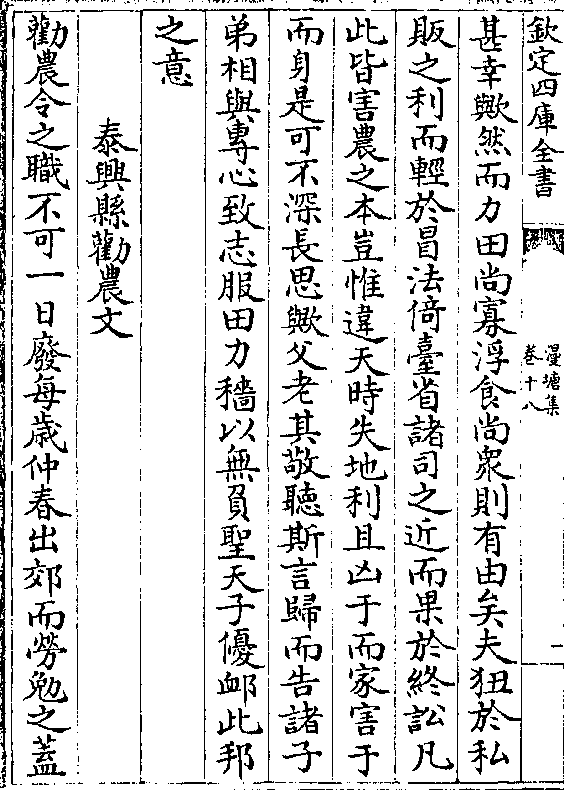 欽定四庫全書
漫塘集
卷十八
一
甚幸歟然而力田尚寡浮食尚衆則有由矣夫狃於私
販之利而輕於冒法倚臺省諸司之近而果於終訟凡
此皆害農之本豈惟違天時失地利且凶于而家害于
而身是可不深長思歟父老其敬聽斯言歸而告諸子
弟相與專心致志服田力穡以無負聖天子優䘏此邦
之意
泰興縣勸農文
勸農令之職不可一日廢每歲仲春出郊而勞勉之蓋